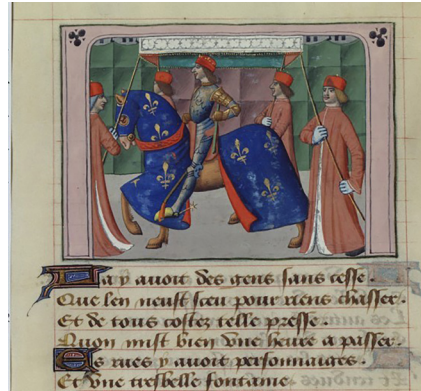 La y auoit des gens sans cesse.
Que len neust sceu pour riens chasser.
Et de tous costez telle presse.
Quon mist bien vne heure a passer.
Es rues y auoit personnaiges.
Et vne tresbelle fontaine